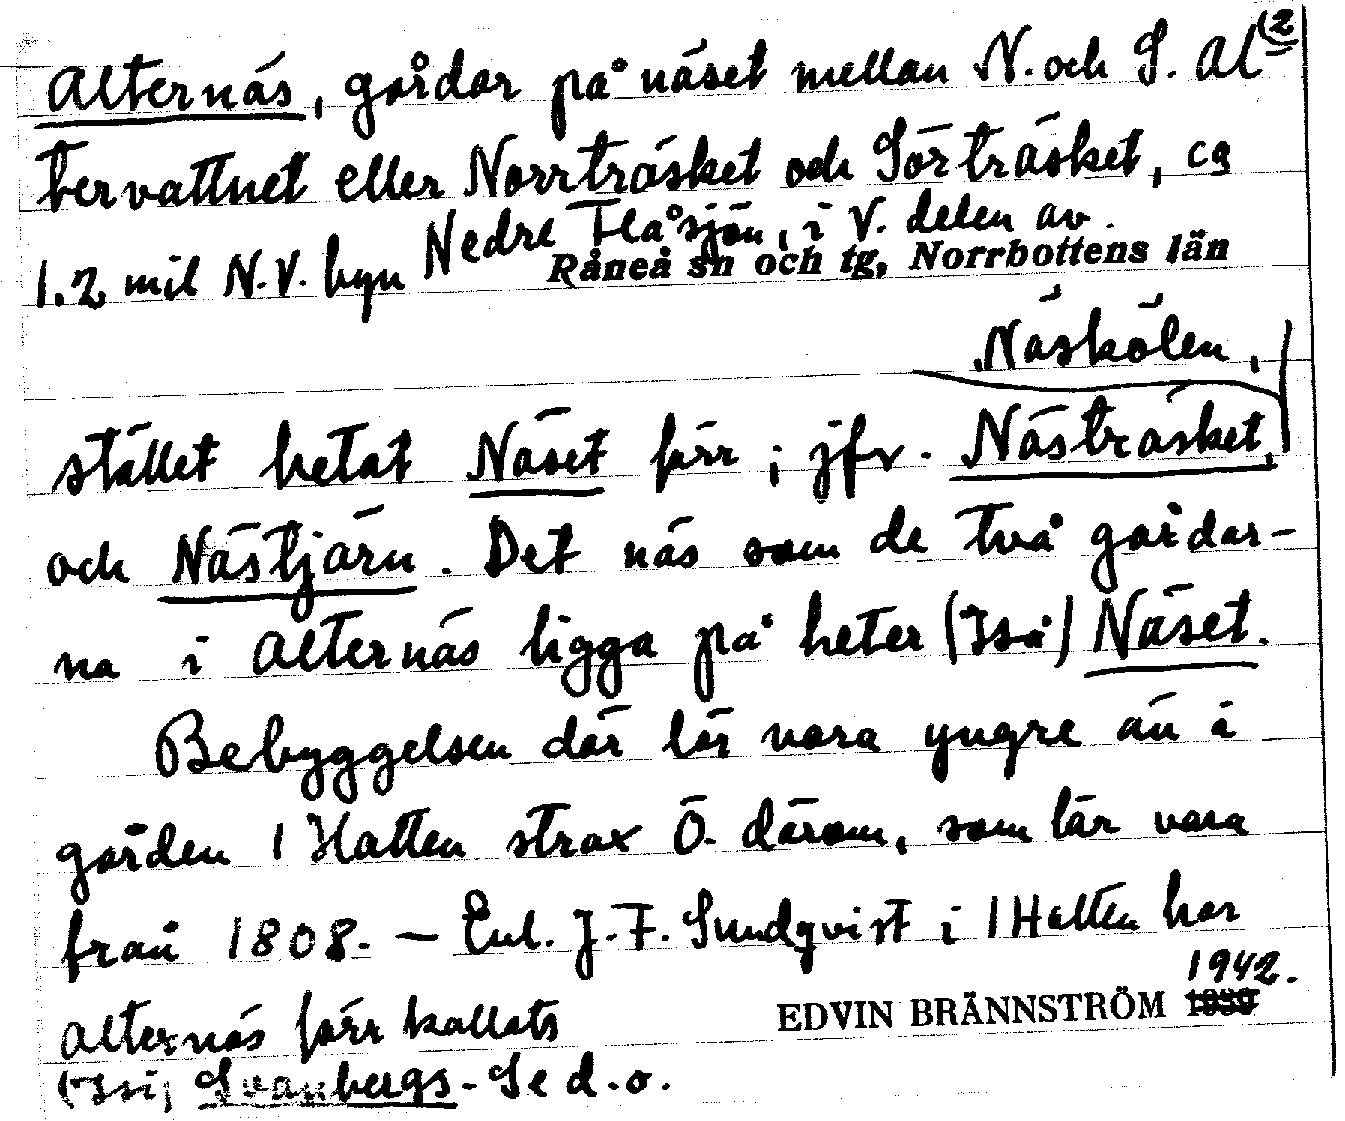 (2
Alternäs, gårdar på näset mellan N. och S. Al-
tervattnet eller Norrträsket och Sörträsket, ca
1.2 mil N.V. byn Nedre Flåsjön, i V. delen av
Råneå sn och tg, Norrbottens län
Näskölen,
stället hetat Näset förr; jfr. Nästräsket,
och Nästjärn. Det näs som de två gårdar-
na i Alternäs ligga på heter Näset.
Bebyggelsen där lär vara yngre än i
gården Hatten strax Ö. därom, som lär vara
från 1808. — Enl. J. F. Sundqvist i Hatten har
1942.
Alternäs förr kallats EDVIN BRÄNNSTRÖM 1939
Svanbergs- Se d.o.